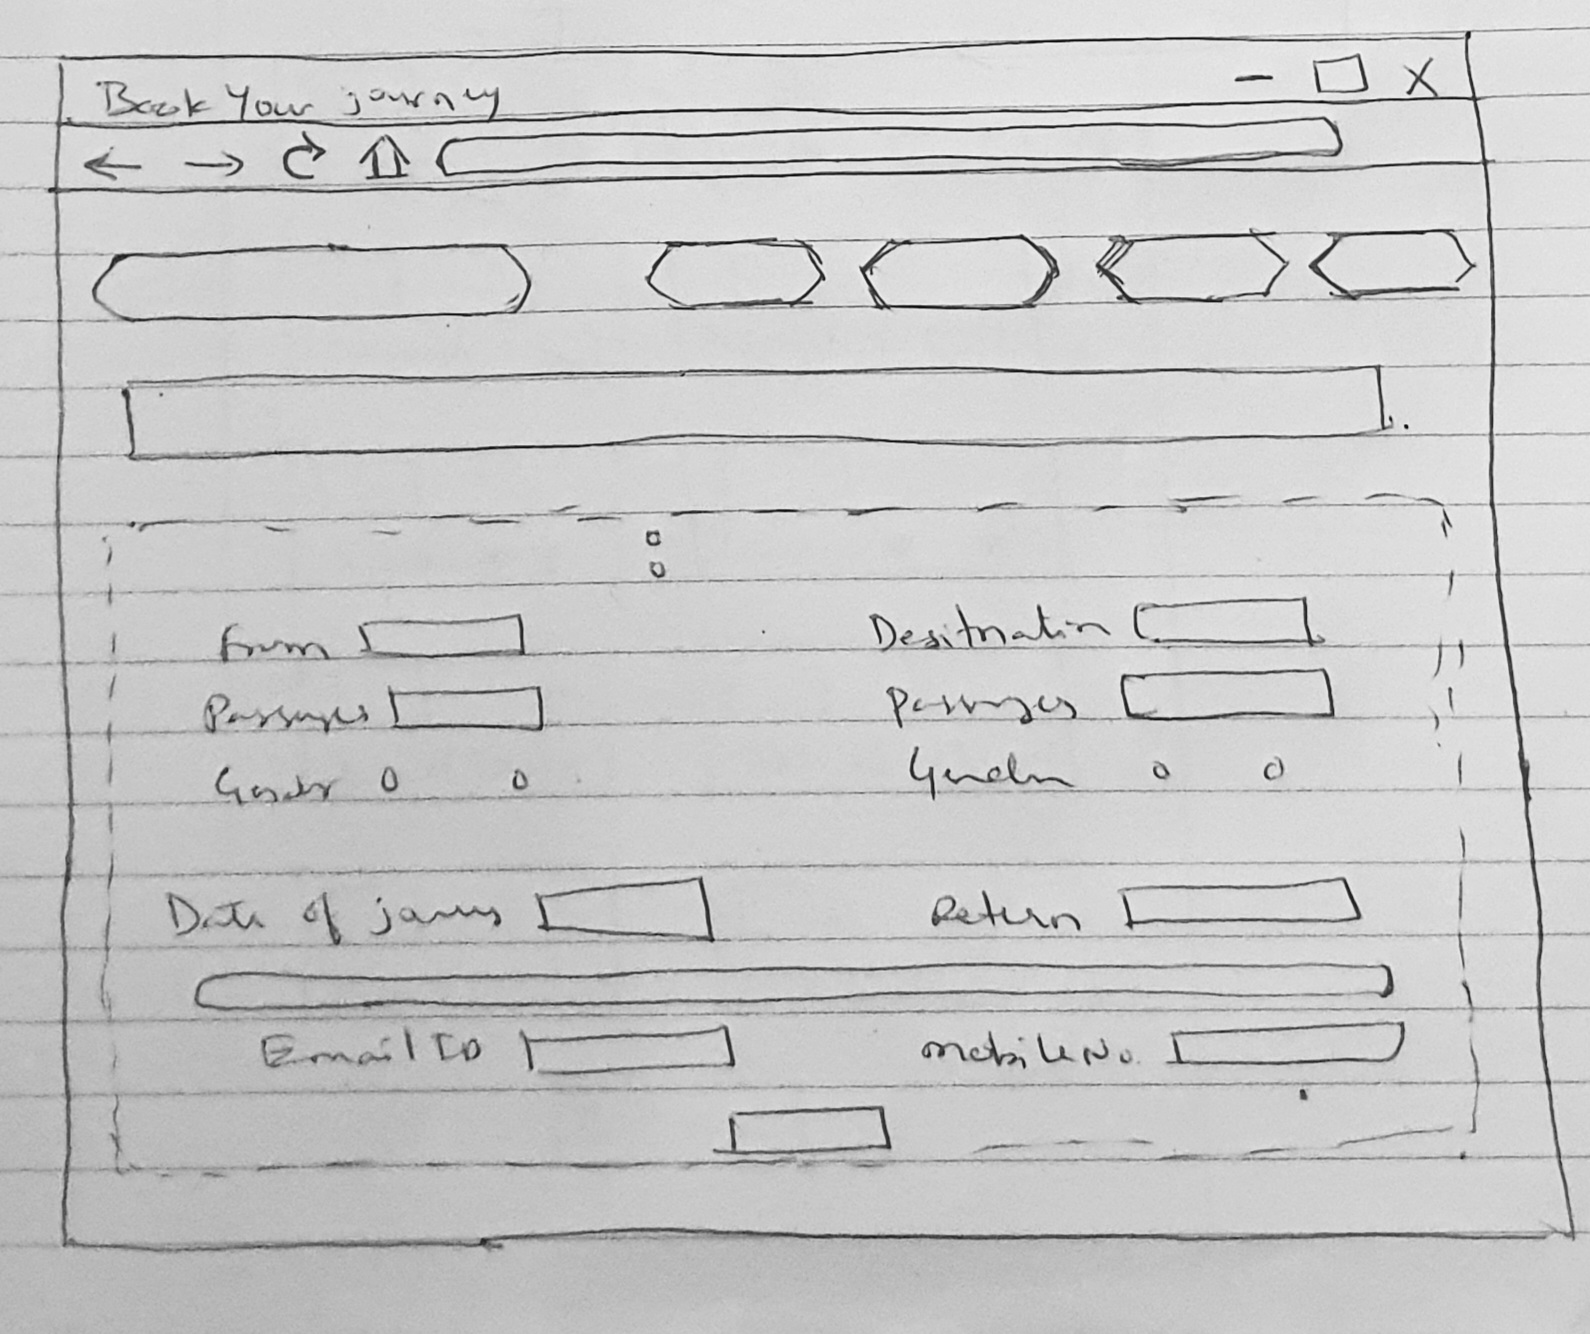 Book Your journey
From Desitnation
Passanges Passenges
Gender Gender
Date of journey Return
Email ID mobile No.